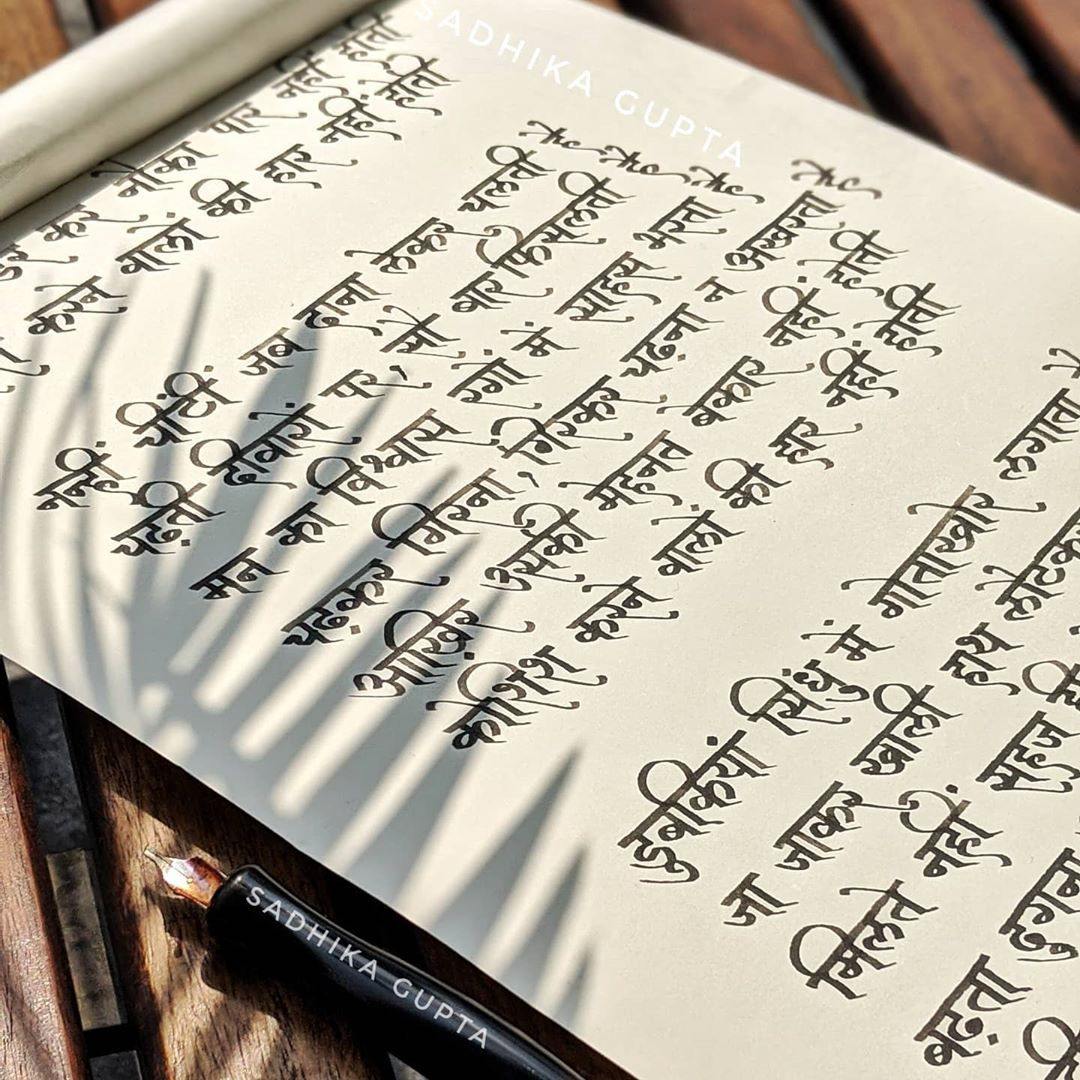 SADHIKA GUPTA
डर कर नौका पार नहीं होती
करने वालों की हार नहीं होती
नन्हीं चींटीं जब दाना लेकर चलती है
चढ़ती दीवारों पर, सौ बार फिसलती है
मन का विश्वास रगों में साहस भरता है
चढ़कर गिरना, गिरकर चढ़ना न अखरता है
आखिर उसकी मेहनत बेकार नहीं होती
कोशिश करने वालों की हार नहीं होती
डुबकियां सिंधु में गोताखोर लगाता
जा जाकर खाली हाथ लौटकर
मिलते नहीं सहज ही
बढ़ता दुगना
SADHIKA GUPTA